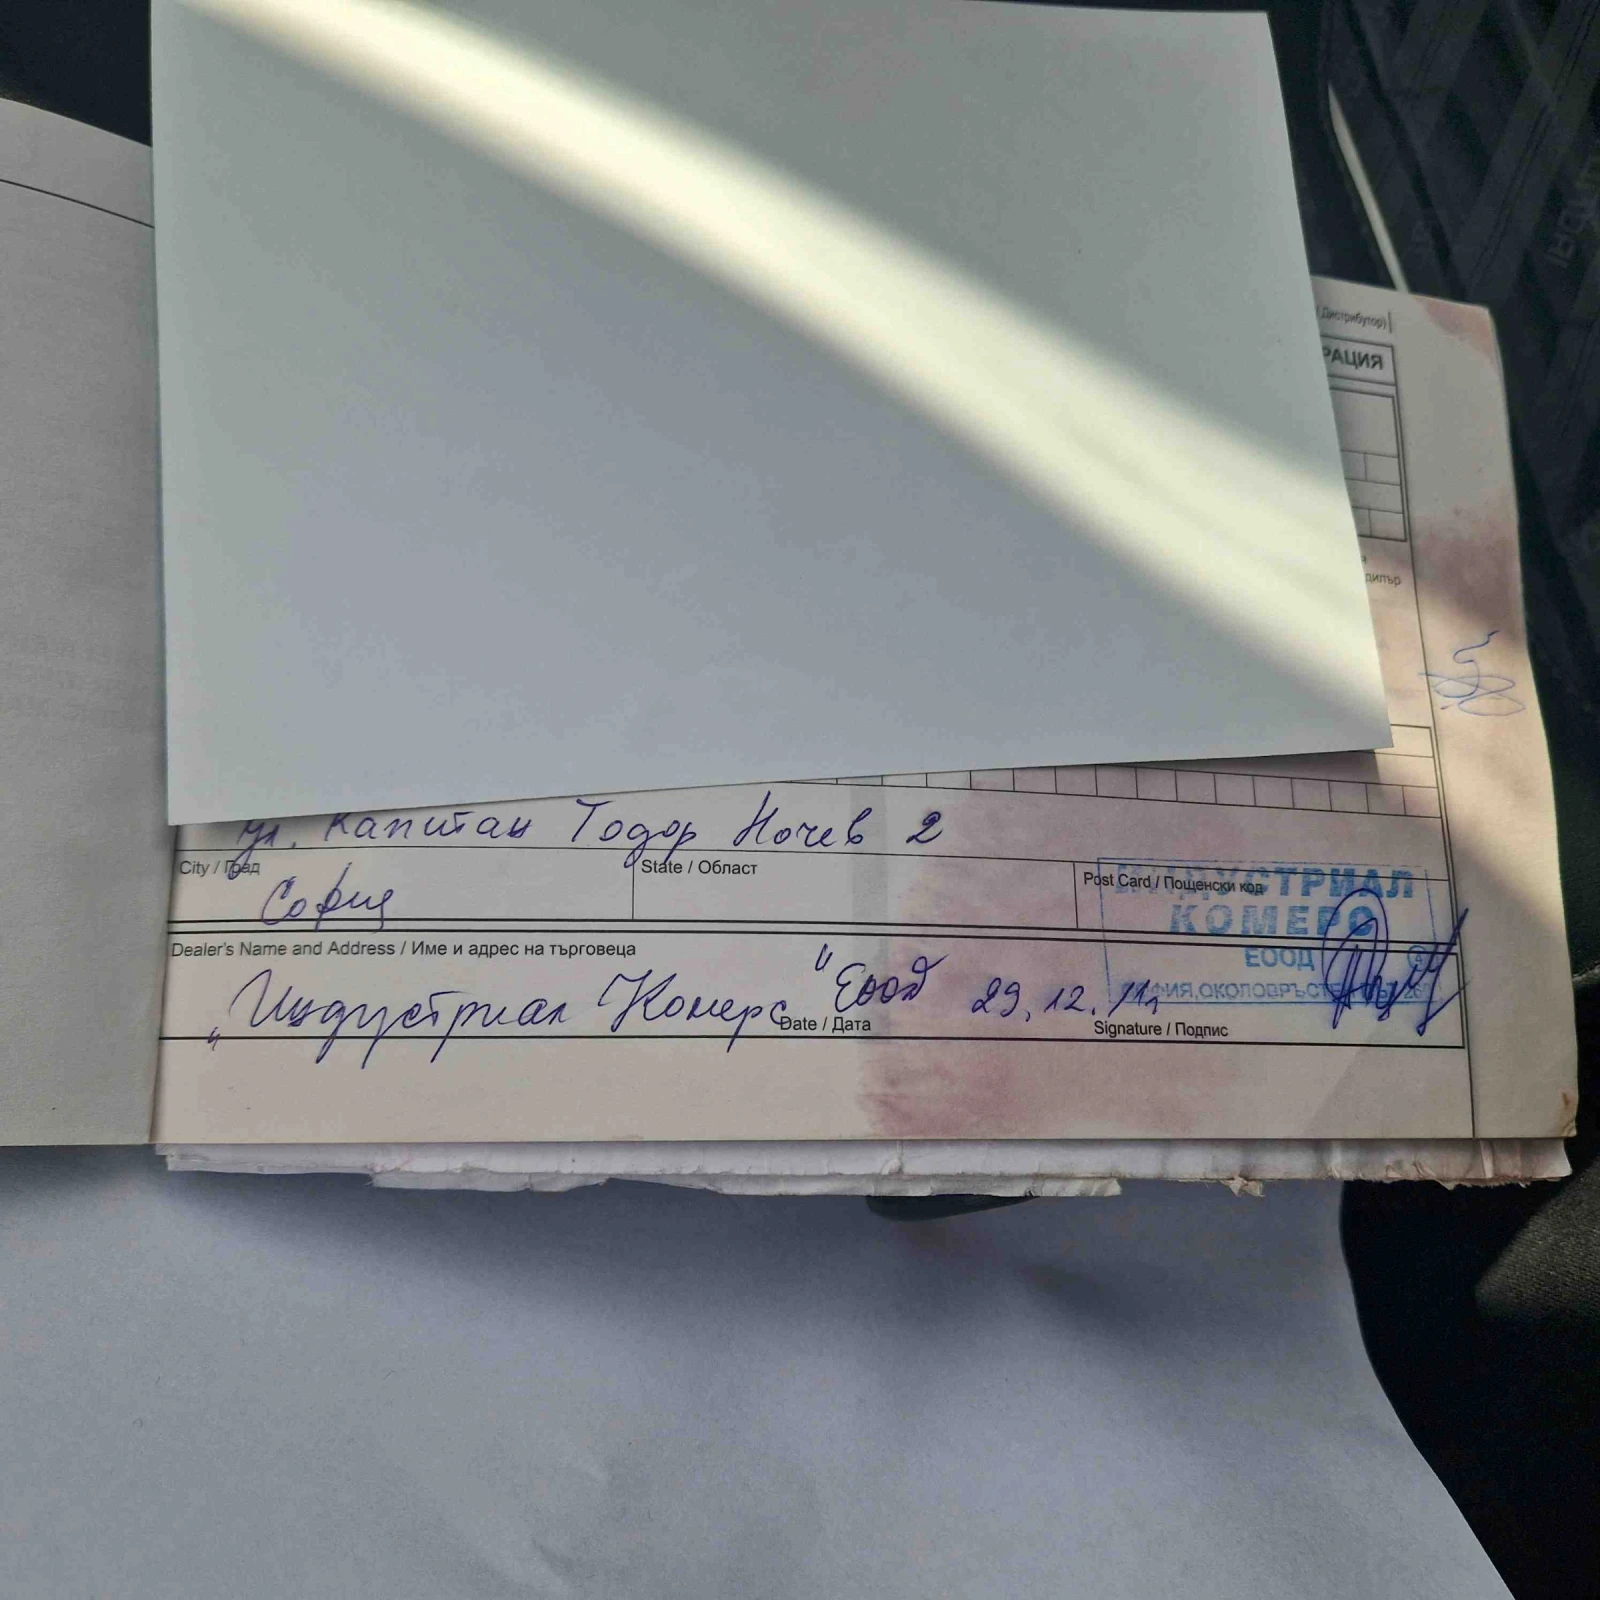 Дистрибутор)
РАЦИЯ
дилър
ул. Капитан Тодор Ночев 2
City / Град
State / Област
Post Card / Пощенски код
София
ИНДУСТРИАЛ
КОМЕРС
ЕООД
Dealer's Name and Address / Име и адрес на търговеца
„Индустриал Комерс" Еоод 29.12.11г
Date / Дата
Signature / Подпис